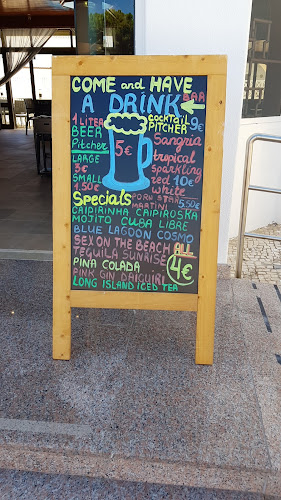 COME and HAVE
A DRINK
BAR
1 LITER
BEER
Pitcher
5€
LARGE
3€
SMALL
1.50€
COCKTAIL
PITCHER 9€
Sangria
tropical
sparkling
red 10€
white
Specials
PORN STAR
MARTINI 5.50€
CAIPIRINHA CAIPIROSKA
MOJITO CUBA LIBRE
BLUE LAGOON COSMO
SEX ON THE BEACH ALL
TEQUILA SUNRISE 4€
PINA COLADA
PINK GIN DAIQUIRI
LONG ISLAND ICED TEA